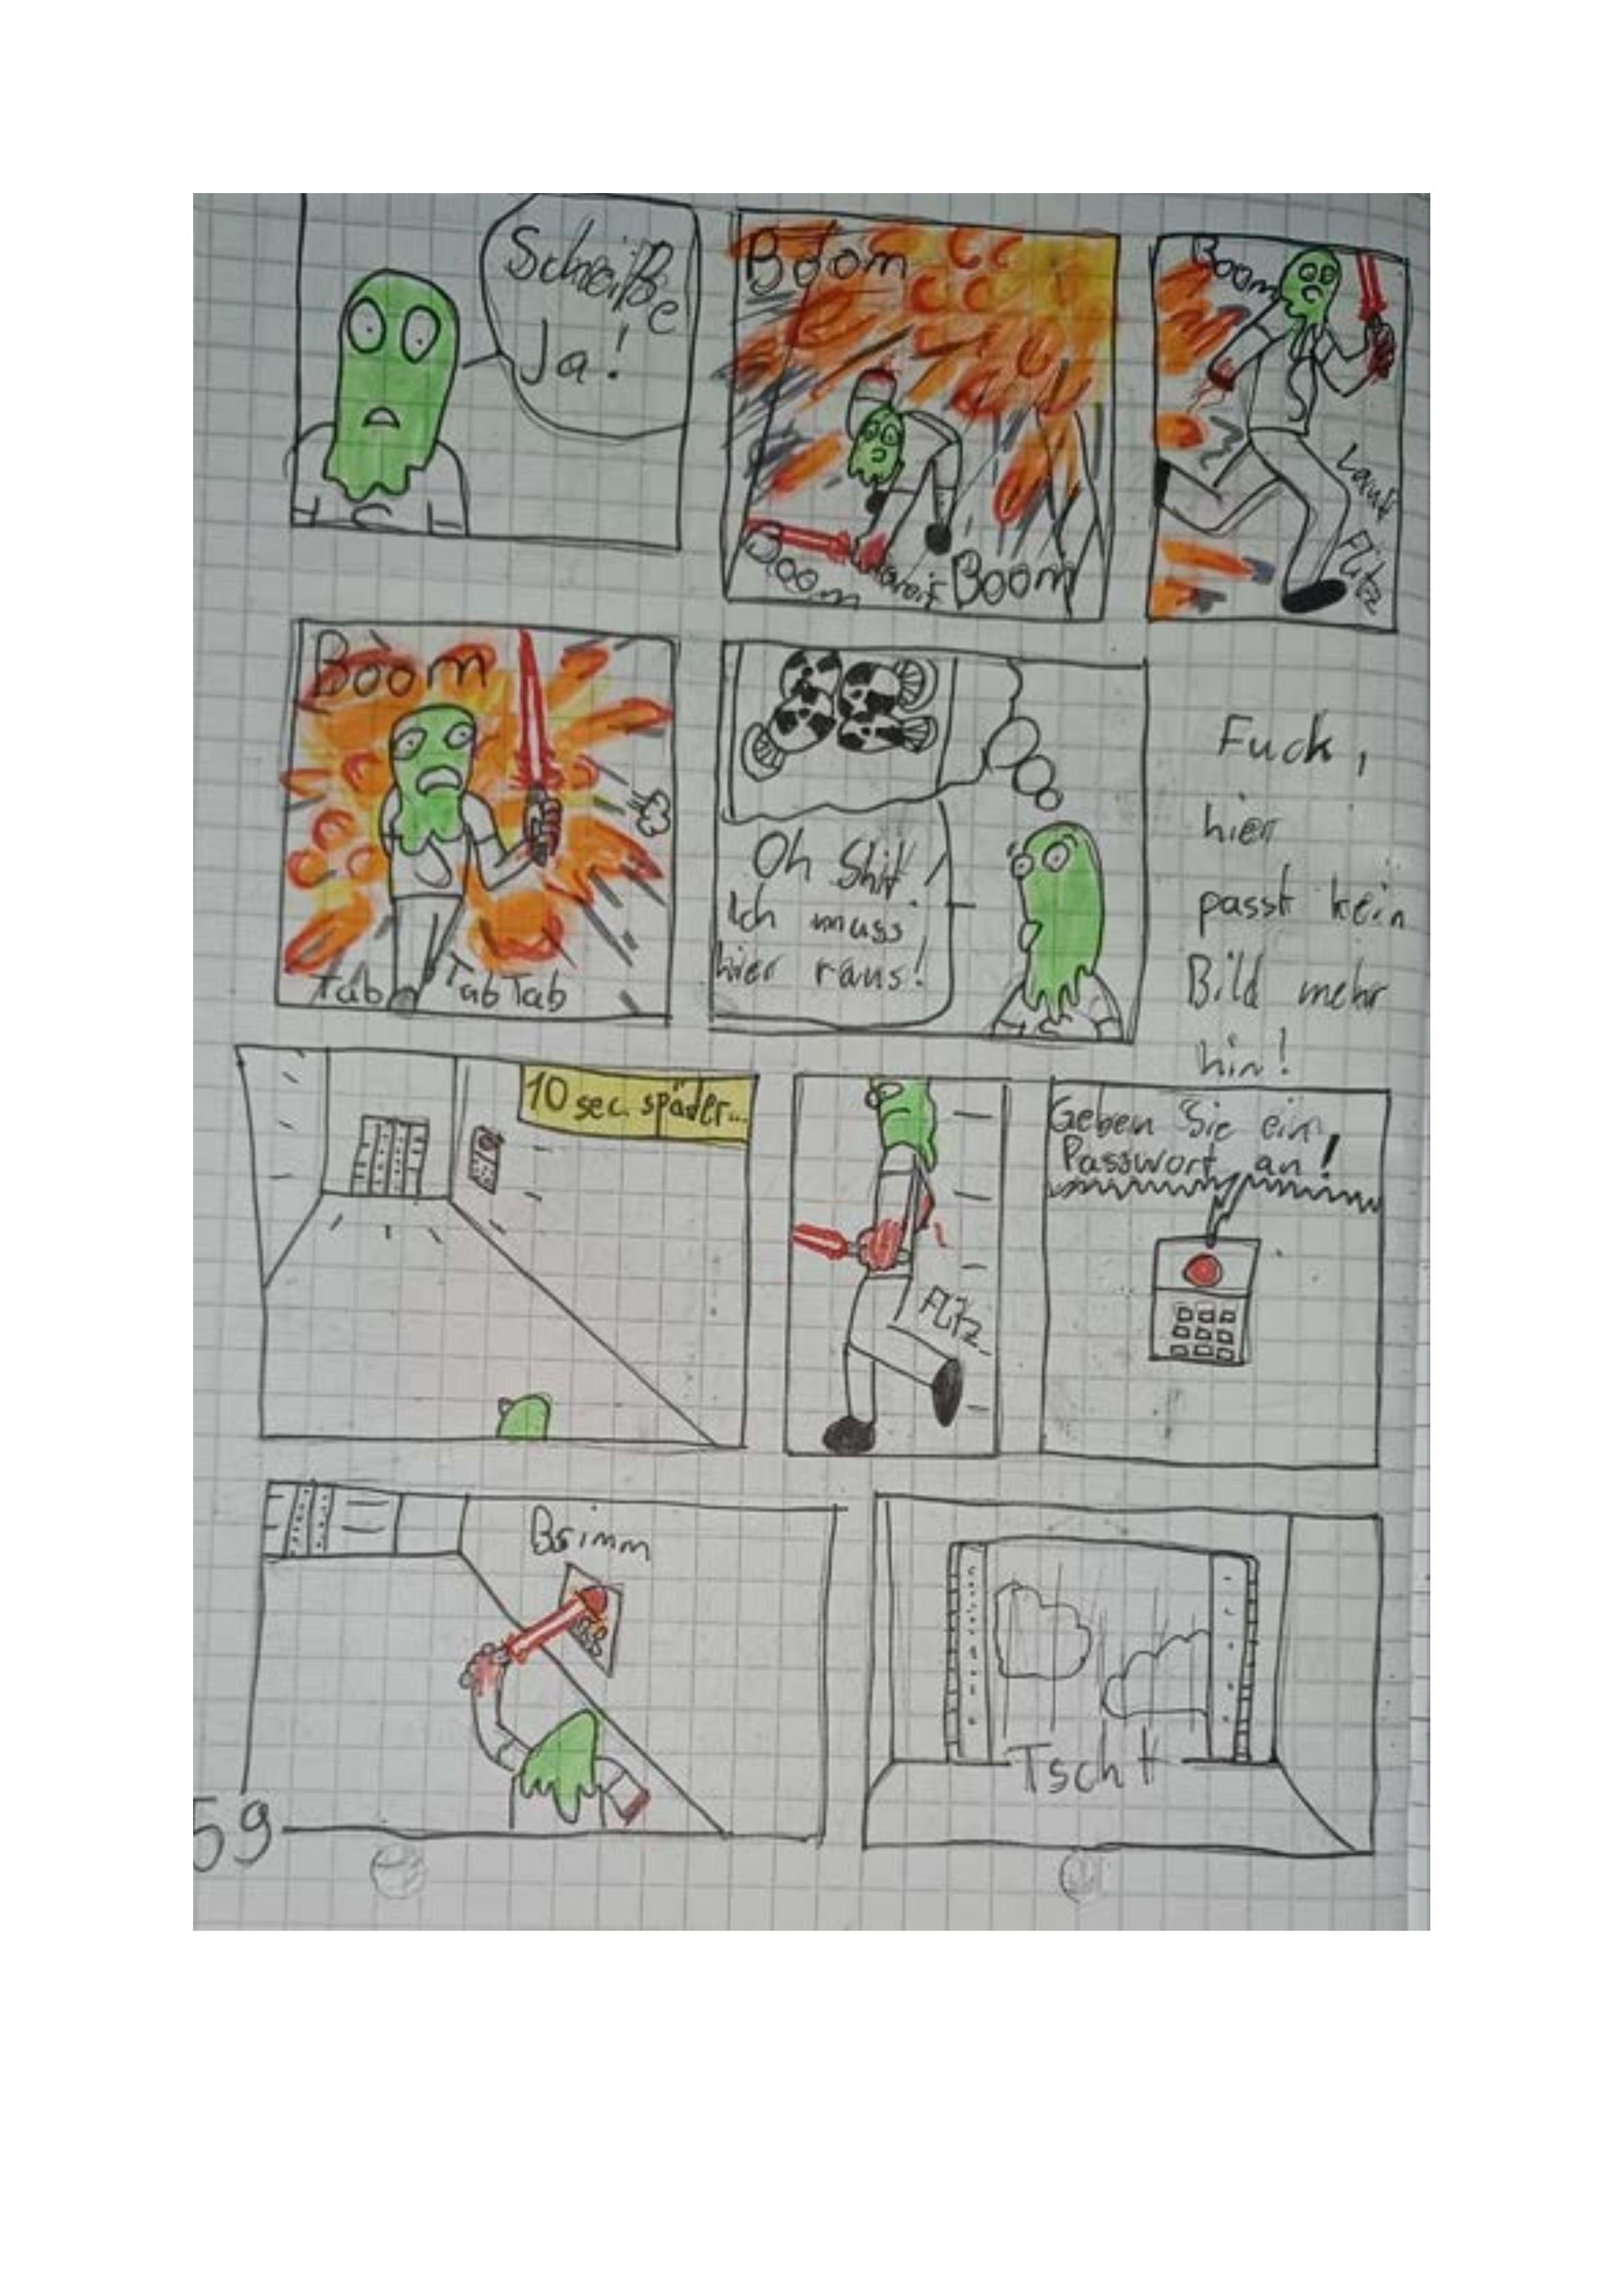 Scheiße
Ja!
Boom
Boom
Boom
Boom
Lauf
Flitz
Boom
Tab Tab Tab
Oh Shit!
Ich muss
hier raus!
Fuck,
hier
passt kein
Bild mehr
hin!
10 sec. späder...
Flitz
Geben Sie ein
Passwort an!
Bsimm
Tscht
59